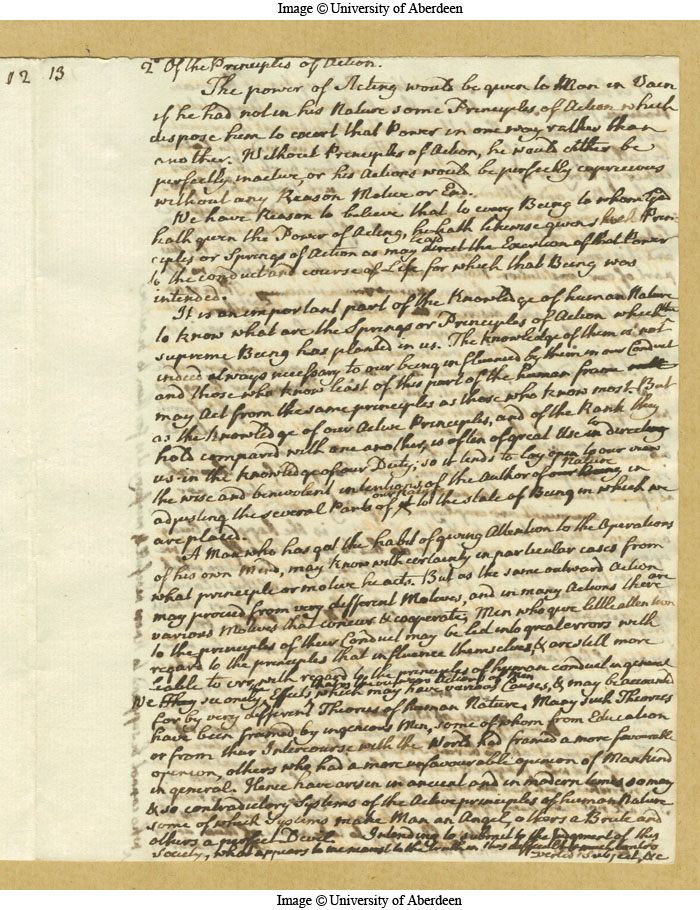 Image © University of Aberdeen
12 13
2d Of the Principles of Action.
The power of Acting would be given to Man in Vain
if he had not in his Nature some Principles of Action which
dispose him to exert that Power in one way rather than
another. Without Principles of Action, he would either be
perfectly inactive, or his Actions would be perfectly capricious
without any Reason Motive or End.
We have Reason to believe that to every Being to whom God
hath given the Power of Acting, he hath likewise given such Prin-
ciples or Springs of Action as may direct the Exertion of that Power
to the conduct and course of Life for which that Being was
intended.
It is an important part of the Knowledge of human Nature
to know what are the Springs or Principles of Action which the
supreme Being has planted in us. The knowledge of them is not
indeed always necessary to our being influenced by them in our Conduct
and those who know least of this part of the human frame
may Act from the same principles as those who know most. But
as the knowledge of our Active Principles, and of the Rank they
hold compared with one another, is often of great Use in directing
us in the knowledge of our Duty; so it tends to lay open to our view
the wise and benevolent intentions of the Author of our Being Nature in
adjusting the several Parts of our Nature to the state of Being in which we
are placed.
A Man who has got the habit of giving Attention to the Operations
of his own Mind, may know with certainty in particular cases from
what principle or motive he acts. But as the same outward Action
may proceed from very different Motives, and in many Actions there are
various Motives that concur & cooperate, Men who give little attention
to the principles of their Conduct may be led into great errors with
regard to the principles that influence themselves, & are still more
liable to err, with regard to the principles of human conduct in general
that the various Actions of Men
We see only Effects, which may have various Causes, & may be accounted
for by very different Theories of human Nature. Many such Theories
have been framed by ingenious Men, some of whom from Education
or from their Intercourse with the World had framed a more favourable
opinion, others who had a more unfavourable opinion of Mankind
in general. Hence have arisen in ancient and in modern times so many
& so contradictory Systems of the Active principles of human Nature
some of which Systems make Man an Angel, others a Brute and
others a perfect Devil. Intending to submit to the judgment of this
Society, what appears to me nearest to the truth in this difficult & much contro
verted subject, &c
Image © University of Aberdeen